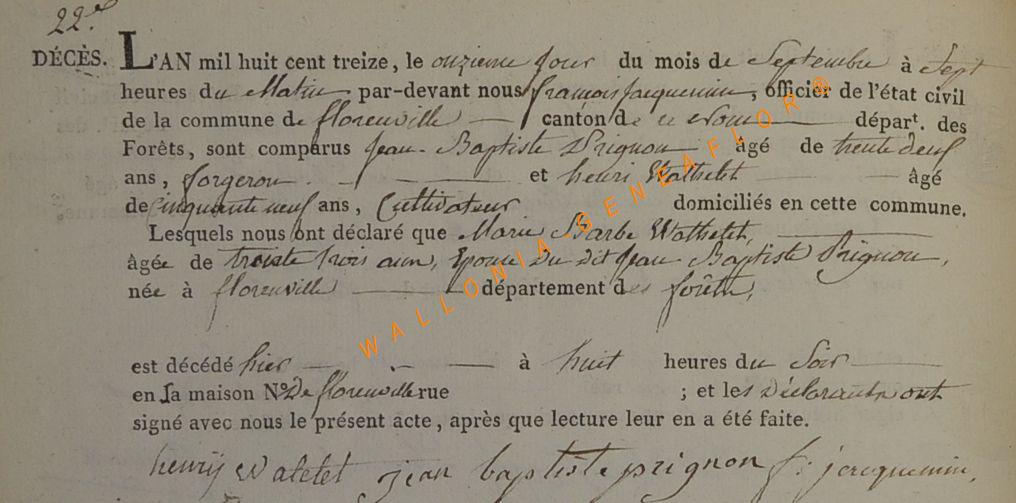 22.e
DÉCÈS. L'AN mil huit cent treize, le onzieme jour du mois de Septembre à Sept
heures du Matin par-devant nous françois jacquemin, officier de l'état civil
de la commune de florenville canton de ce nom départ. des
Forêts, sont comparus Jean Baptiste Prignon âgé de trente neuf
ans, forgeron et henri Wathelet âgé
de Cinquante neuf ans, Cultivateur domiciliés en cette commune.
Lesquels nous ont déclaré que Marie Barbe Wathelet,
âgée de trente trois ans, Epouse du dit Jean Baptiste Prignon,
née à florenville département des forêts,
est décédé hier à huit heures du Soir
en la maison N.º De florenville rue ; et les déclarants ont
signé avec nous le présent acte, après que lecture leur en a été faite.
henrij Watelet jean baptiste prignon f. jacquemin,
WALLONIA GENEAFLOR ®